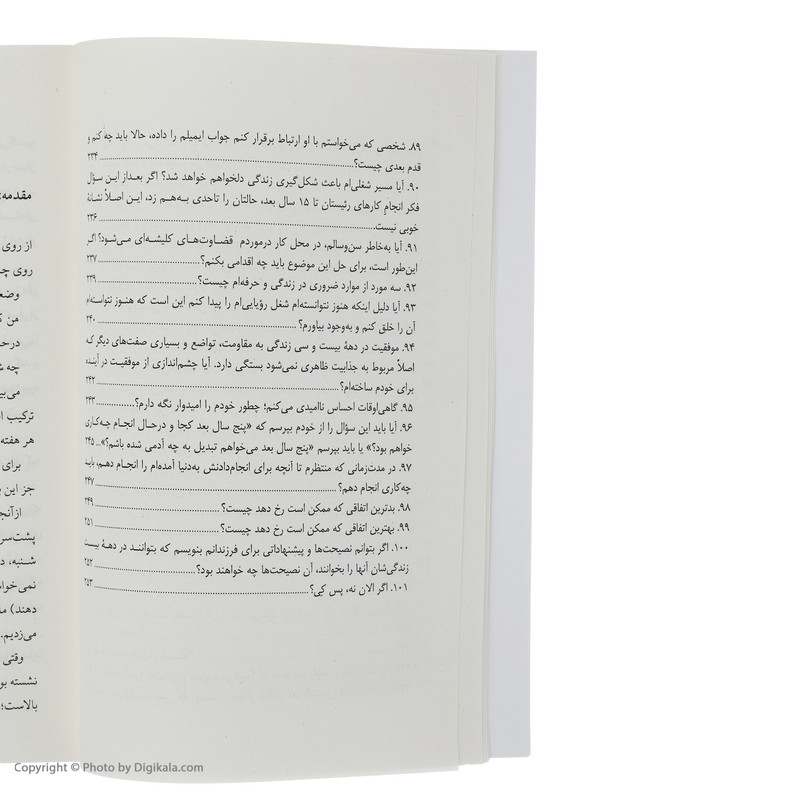 ۸۹. شخصی که می‌خواستم با او ارتباط برقرار کنم جواب ایمیلم را داده، حالا باید چه کنم و
قدم بعدی چیست؟ ۲۳۴
۹۰. آیا مسیر شغلی‌ام باعث شکل‌گیری زندگی دلخواهم خواهد شد؟ اگر بعداز این سؤال
فکر انجام کارهای رئیستان تا ۱۵ سال بعد، حالتان را تاحدی به‌هم زد، این اصلاً نشانهٔ
خوبی نیست. ۲۳۶
۹۱. آیا به‌خاطر سن‌وسالم، در محل کار درموردم قضاوت‌های کلیشه‌ای می‌شود؟ اگر
این‌طور است، برای حل این موضوع باید چه اقدامی بکنم؟ ۲۳۷
۹۲. سه مورد از موارد ضروری در زندگی و حرفه‌ام چیست؟ ۲۳۹
۹۳. آیا دلیل اینکه هنوز نتوانسته‌ام شغل رؤیایی‌ام را پیدا کنم این است که هنوز نتوانسته‌ام
آن را خلق کنم و به‌وجود بیاورم؟ ۲۴۰
۹۴. موفقیت در دههٔ بیست و سی زندگی به مقاومت، تواضع و بسیاری صفت‌های دیگر که
اصلاً مربوط به جذابیت ظاهری نمی‌شود بستگی دارد. آیا چشم‌اندازی از موفقیت در آینده
برای خودم ساخته‌ام؟ ۲۴۲
۹۵. گاهی‌اوقات احساس ناامیدی می‌کنم؛ چطور خودم را امیدوار نگه دارم؟ ۲۴۳
۹۶. آیا باید این سؤال را از خودم بپرسم که «پنج سال بعد کجا و درحال انجام چه‌کاری
خواهم بود؟» یا باید بپرسم «پنج سال بعد می‌خواهم تبدیل به چه آدمی شده باشم؟» ۲۴۵
۹۷. در مدت‌زمانی که منتظرم تا آنچه برای انجام‌دادنش به‌دنیا آمده‌ام را انجام دهم، باید
چه‌کاری انجام دهم؟ ۲۴۷
۹۸. بدترین اتفاقی که ممکن است رخ دهد چیست؟ ۲۴۹
۹۹. بهترین اتفاقی که ممکن است رخ دهد چیست؟ ۲۵۱
۱۰۰. اگر بتوانم نصیحت‌ها و پیشنهاداتی برای فرزندانم بنویسم که بتوانند در دههٔ بیست
زندگی‌شان آنها را بخوانند، آن نصیحت‌ها چه خواهند بود؟ ۲۵۲
۱۰۱. اگر الان نه، پس کِی؟ ۲۵۳
مقدمه:
از روی
روی
وضع
من
چه
ترکیب
هر هفته
برای
جز این
ازآنج
پشت‌سر
شنبه، د
نمی‌خوا
دهند) ما
می‌زدیم.
وقتی
نشسته بو
بالاست؛
Copyright © Photo by Digikala.com